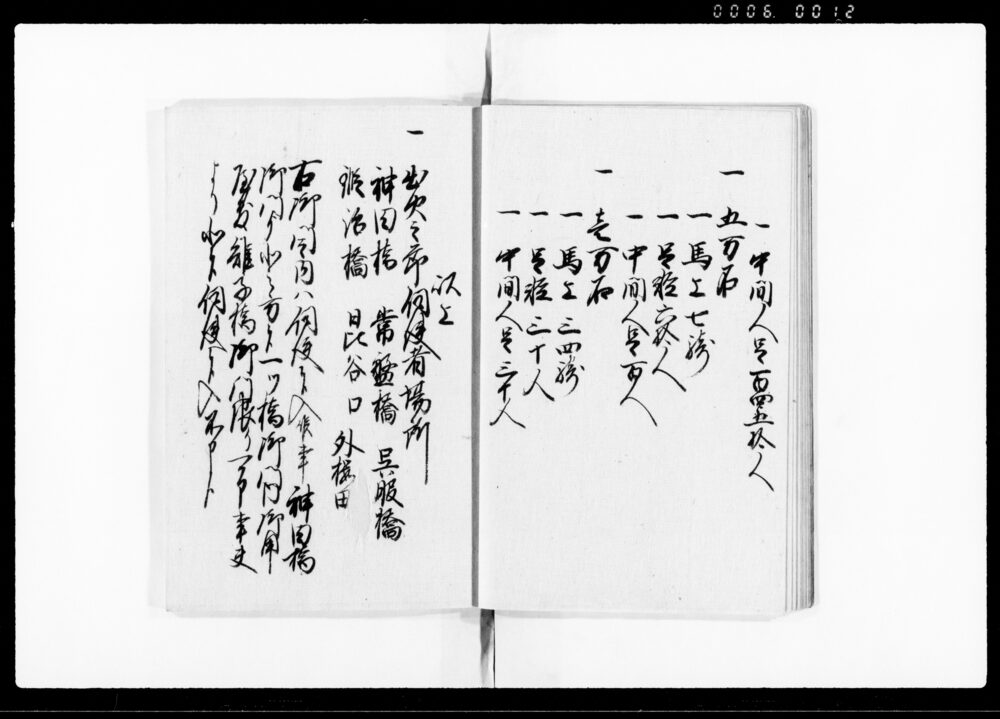 0006. 0012
一 中間人足百四五拾人
一 五万石
一 馬上七騎
一 足軽六拾人
一 中間人足百人
一 壱万石
一 馬上三四騎
一 足軽三十人
一 中間人足三十人
以上
一 出火之節伺使者場所
神田橋 常盤橋 呉服橋
鍛冶橋 日比谷口 外桜田
右御門内ハ伺使之入候事 神田橋
御門より北之方ハ一ツ橋御門御用
屋敷雉子橋御門限り 事
より北ハ伺使之入不申